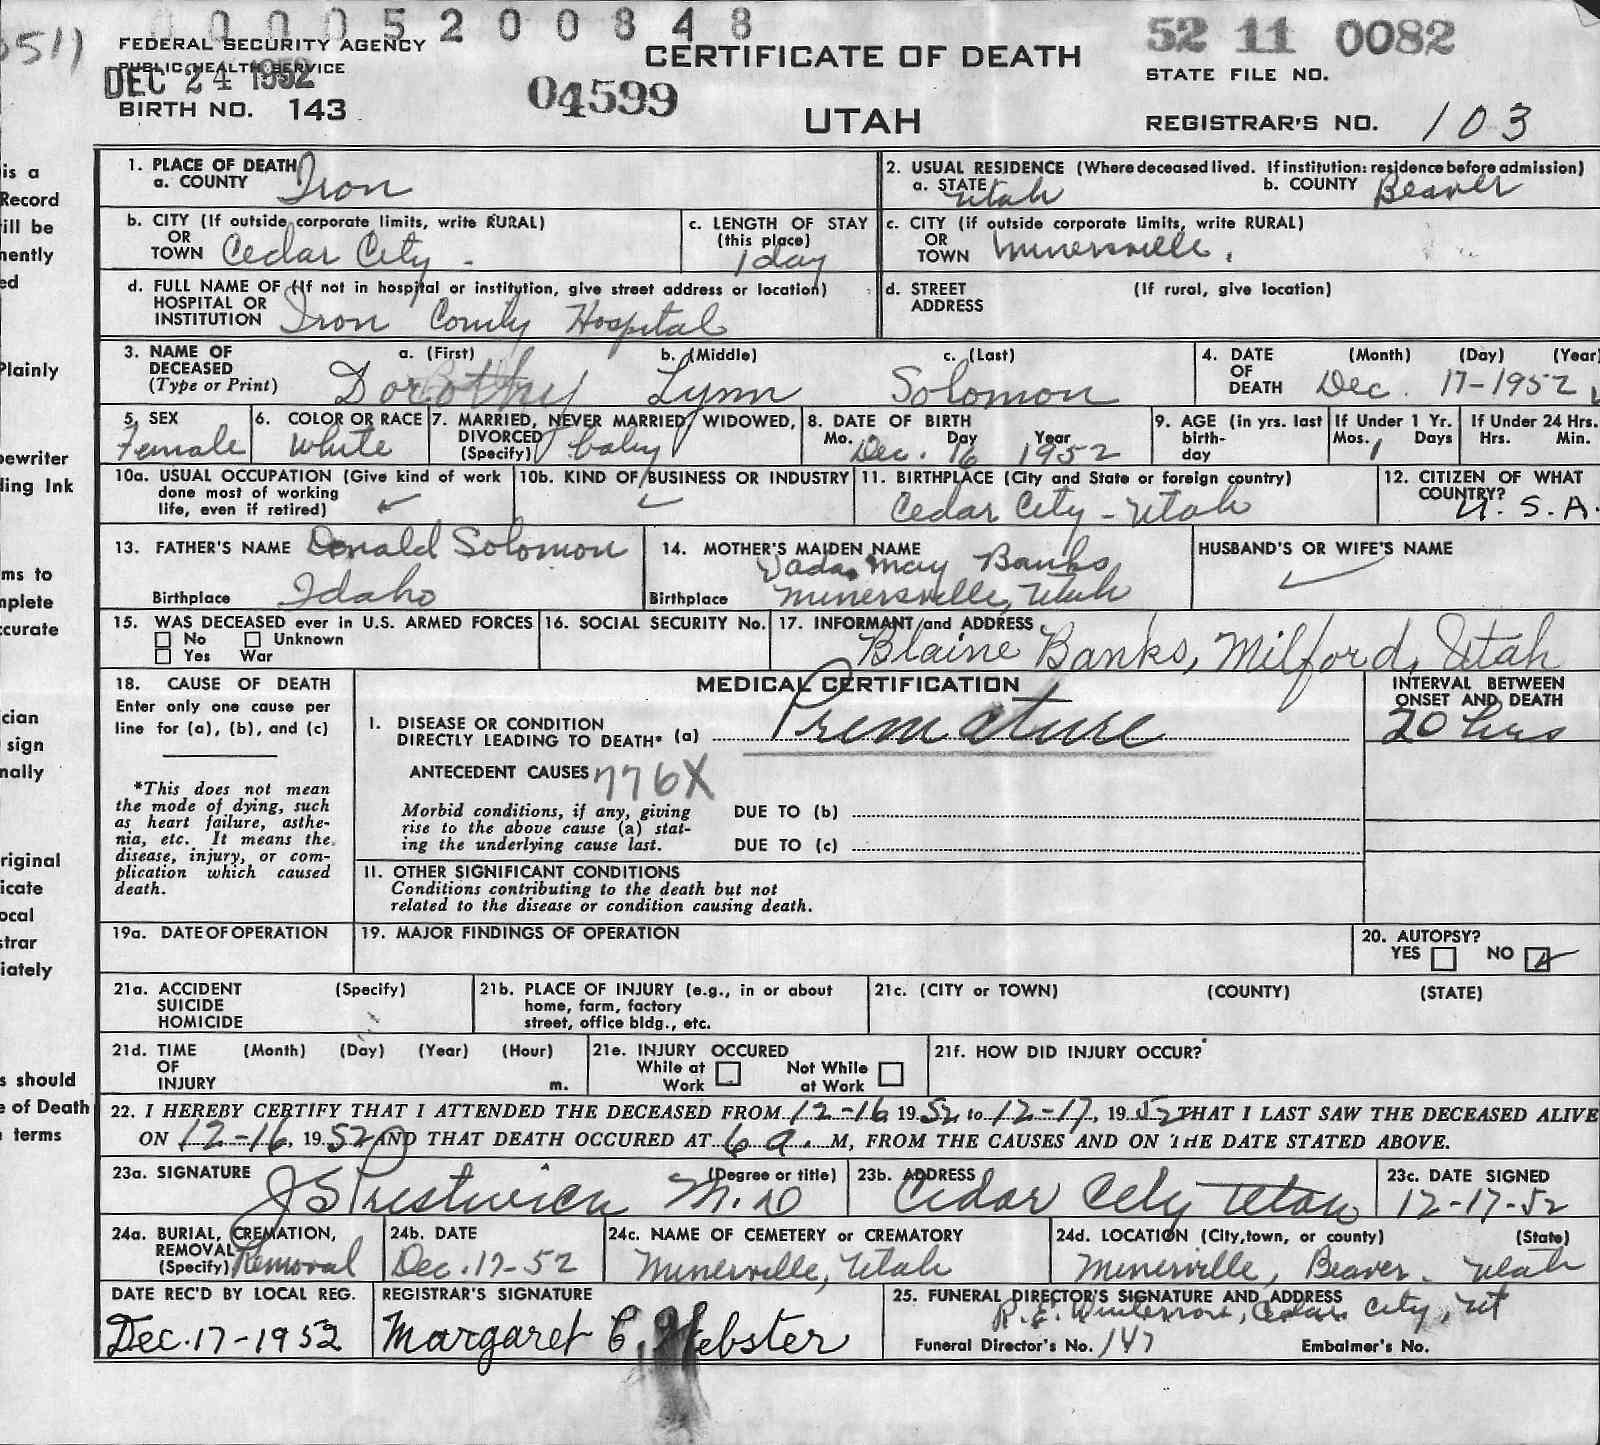 0000520084 8
511)
FEDERAL SECURITY AGENCY
PUBLIC HEALTH SERVICE
DEC 24 1952
BIRTH NO. 143
04599
CERTIFICATE OF DEATH
UTAH
52 11 0082
STATE FILE NO.
REGISTRAR'S NO. 103
1. PLACE OF DEATH
a. COUNTY Iron
2. USUAL RESIDENCE (Where deceased lived. If institution: residence before admission)
a. STATE Utah b. COUNTY Beaver
b. CITY (If outside corporate limits, write RURAL)
OR
TOWN Cedar City -
c. LENGTH OF STAY
(this place)
1 day
c. CITY (if outside corporate limits, write RURAL)
OR
TOWN Minersville.
d. FULL NAME OF (If not in hospital or institution, give street address or location)
HOSPITAL OR
INSTITUTION Iron County Hospital
d. STREET (If rural, give location)
ADDRESS
3. NAME OF DECEASED (Type or Print)
a. (First) b. (Middle) c. (Last)
Dorothy Lynn Solomon
4. DATE OF DEATH (Month) (Day) (Year)
Dec. 17-1952
5. SEX
Female
6. COLOR OR RACE
White
7. MARRIED, NEVER MARRIED, WIDOWED,
DIVORCED
(Specify) baby
8. DATE OF BIRTH
Mo. Day Year
Dec. 16 1952
9. AGE (in yrs. last birth-day
If Under 1 Yr.
Mos. 1 Days
If Under 24 Hrs.
Hrs. Min.
10a. USUAL OCCUPATION (Give kind of work
done most of working
life, even if retired)
10b. KIND OF BUSINESS OR INDUSTRY
11. BIRTHPLACE (City and State or foreign country)
Cedar City - Utah
12. CITIZEN OF WHAT
COUNTRY?
U. S. A.
13. FATHER'S NAME Donald Solomon
Birthplace Idaho
14. MOTHER'S MAIDEN NAME
Vada May Banks
Birthplace Minersville, Utah
HUSBAND'S OR WIFE'S NAME
15. WAS DECEASED ever in U.S. ARMED FORCES
No Unknown
Yes War
16. SOCIAL SECURITY No.
17. INFORMANT and ADDRESS
Blaine Banks, Milford, Utah
18. CAUSE OF DEATH
Enter only one cause per
line for (a), (b), and (c)
*This does not mean
the mode of dying, such
as heart failure, asthe-
nia, etc. It means the
disease, injury, or com-
plication which caused
death.
MEDICAL CERTIFICATION
I. DISEASE OR CONDITION
DIRECTLY LEADING TO DEATH* (a) Premature
INTERVAL BETWEEN
ONSET AND DEATH
20 hrs
ANTECEDENT CAUSES 776X
Morbid conditions, if any, giving
rise to the above cause (a) stat-
ing the underlying cause last.
DUE TO (b)
DUE TO (c)
II. OTHER SIGNIFICANT CONDITIONS
Conditions contributing to the death but not
related to the disease or condition causing death.
19a. DATE OF OPERATION
19. MAJOR FINDINGS OF OPERATION
20. AUTOPSY?
YES NO
21a. ACCIDENT (Specify)
SUICIDE
HOMICIDE
21b. PLACE OF INJURY (e.g., in or about
home, farm, factory
street, office bldg., etc.
21c. (CITY or TOWN) (COUNTY) (STATE)
21d. TIME (Month) (Day) (Year) (Hour)
OF
INJURY m.
21e. INJURY OCCURED
While at Work Not While at Work
21f. HOW DID INJURY OCCUR?
22. I HEREBY CERTIFY THAT I ATTENDED THE DECEASED FROM 12-16 1952 to 12-17, 1952 THAT I LAST SAW THE DECEASED ALIVE
ON 12-16, 1952 AND THAT DEATH OCCURED AT 6 a. M, FROM THE CAUSES AND ON THE DATE STATED ABOVE.
23a. SIGNATURE (Degree or title)
J S Prestwich M.D
23b. ADDRESS
Cedar City Utah
23c. DATE SIGNED
12-17-52
24a. BURIAL, CREMATION,
REMOVAL
(Specify) Removal
24b. DATE
Dec. 17-52
24c. NAME OF CEMETERY OR CREMATORY
Minersville, Utah
24d. LOCATION (City, town, or county) (State)
Minersville, Beaver. Utah
DATE REC'D BY LOCAL REG.
Dec. 17-1952
REGISTRAR'S SIGNATURE
Margaret C. Webster
25. FUNERAL DIRECTOR'S SIGNATURE AND ADDRESS
Cedar City, Ut
Funeral Director's No. 147 Embalmer's No.
is a
Record
ill be
nently
ed
Plainly
ewriter
ling Ink
ms to
nplete
ccurate
cian
sign
nally
riginal
icate
ocal
strar
iately
s should
e of Death
terms